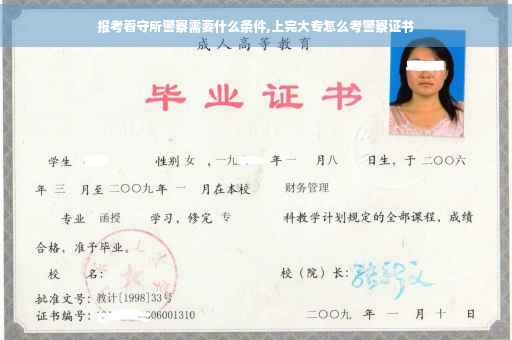 报考看守所警察需要什么条件,上完大专怎么考警察证书
成人高等教育
毕业证书
学生 性别 女 ，一九 年一 月八 日生，于二〇〇六
年 三 月至二〇〇九年 一 月在本校 财务管理
专业 函授 学习，修完 专 科教学计划规定的全部课程，成绩
合格，准予毕业。
校 名： 校（院）长：
批准文号：教计[1998]33号
证书编号： 06001310 二〇〇九 年 一 月 十 日